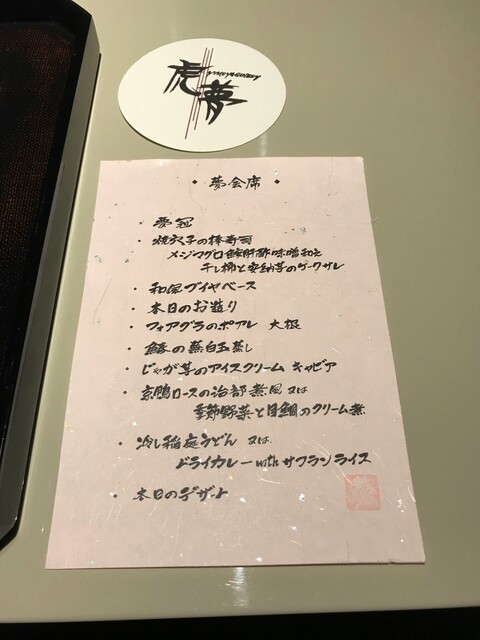 虎夢
・夢会席・
・夢冠
・焼穴子の棒寿司
メジマグロ鮟肝酢味噌和え
干し柿と安納芋のゲークサレ
・和風ブイヤベース
・本日のお造り
・フォアグラのポアレ 大根
・鰆の蕪白玉蒸し
・じゃが芋のアイスクリーム キャビア
・京鴨ロースの治部煮風 又は
季節野菜と目鯛のクリーム煮
・冷し稲庭うどん 又は
ドライカレー with サフランライス
・本日のデザート